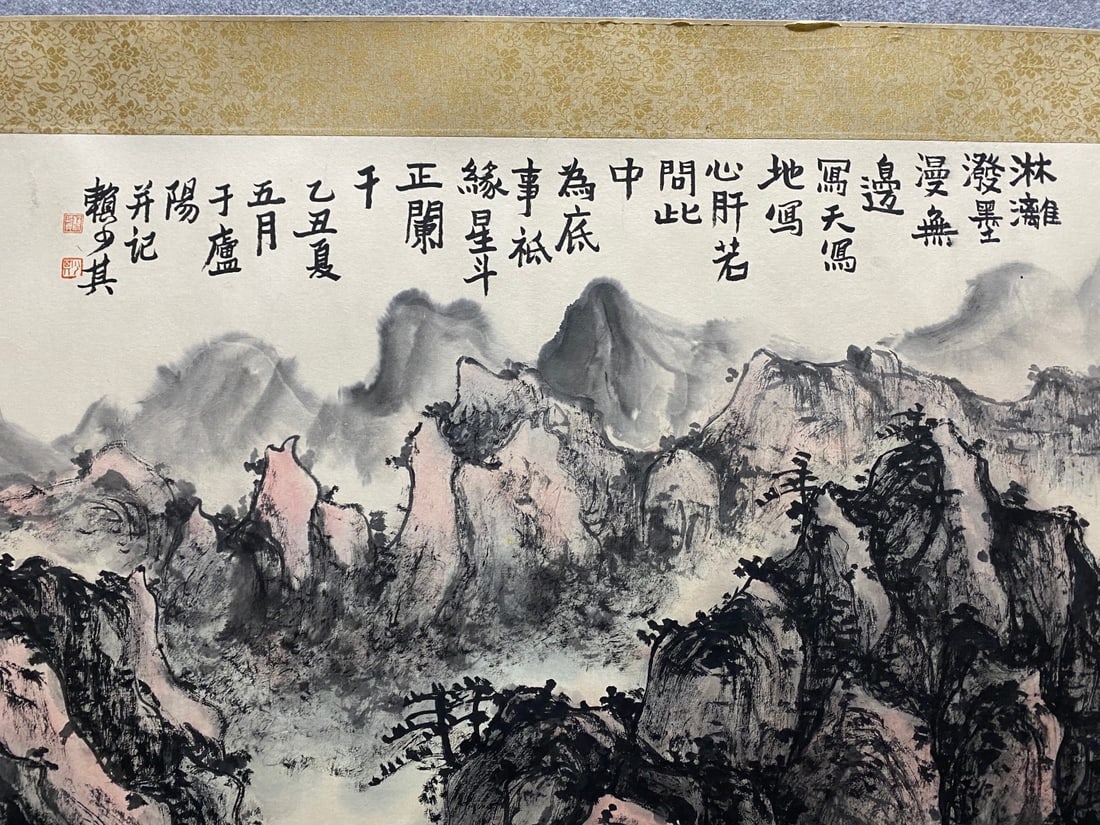 淋漓
潑墨
漫無
邊
寫天寫
地寫
心肝若
問此
中
為底
事祗
緣星斗
正闌
干
乙丑夏
五月
于廬
陽
并记
賴少其